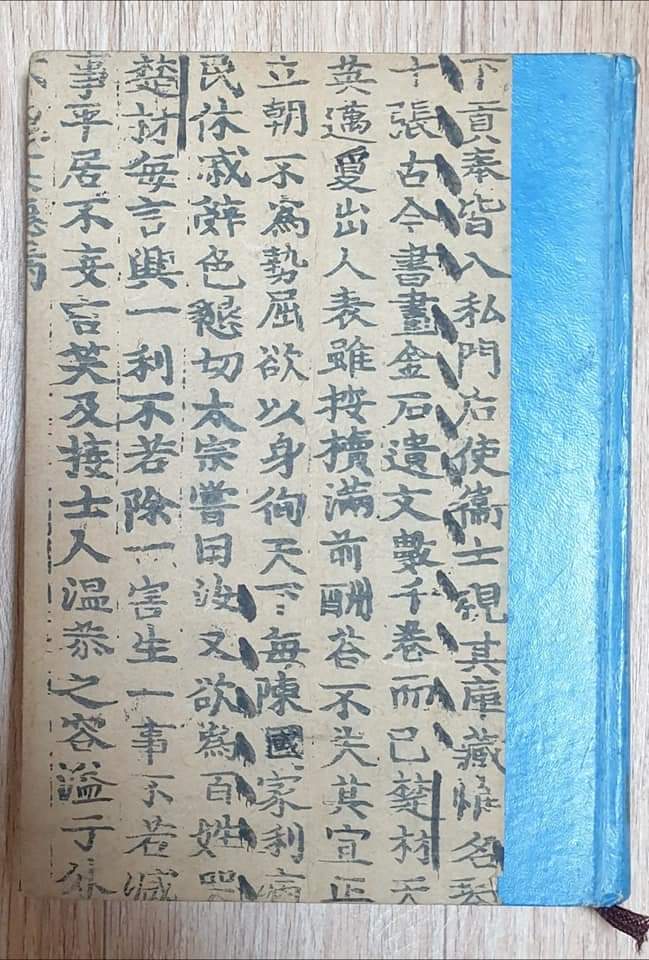 下貢奉皆入私門后使衛士視其庫藏惟名琴
十張古今書畫金石遺文數千卷而已楚材天
英邁夐出人表雖按牘滿前酬荅不失其宜正
立朝不為勢屈欲以身徇天下每陳國家利病
民休戚辭色懇切太宗嘗曰汝又欲為百姓哭
楚材每言興一利不若除一害生一事不若減
事平居不妄言笑及接士人溫恭之容溢于外